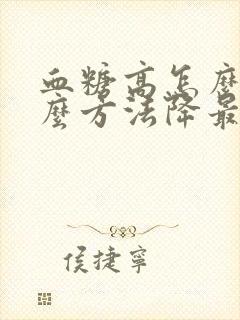 血糖高怎麼
麼方法降最
侯捷寧